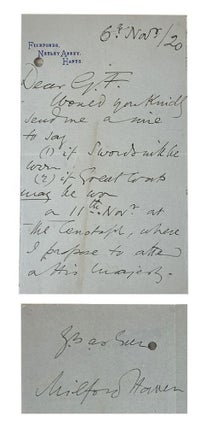 6th Novr/20
FISHPONDS,
NETLEY ABBEY,
HANTS.
Dear G.F.
Would you kindly
send me a line
to say
(1) if Swords will be
worn
(2) if Great Coats
may be worn
on 11th Novr at
the Cenotaph, where
I propose to attend
on His Majesty.
Yrs as Ever
Milford Haven